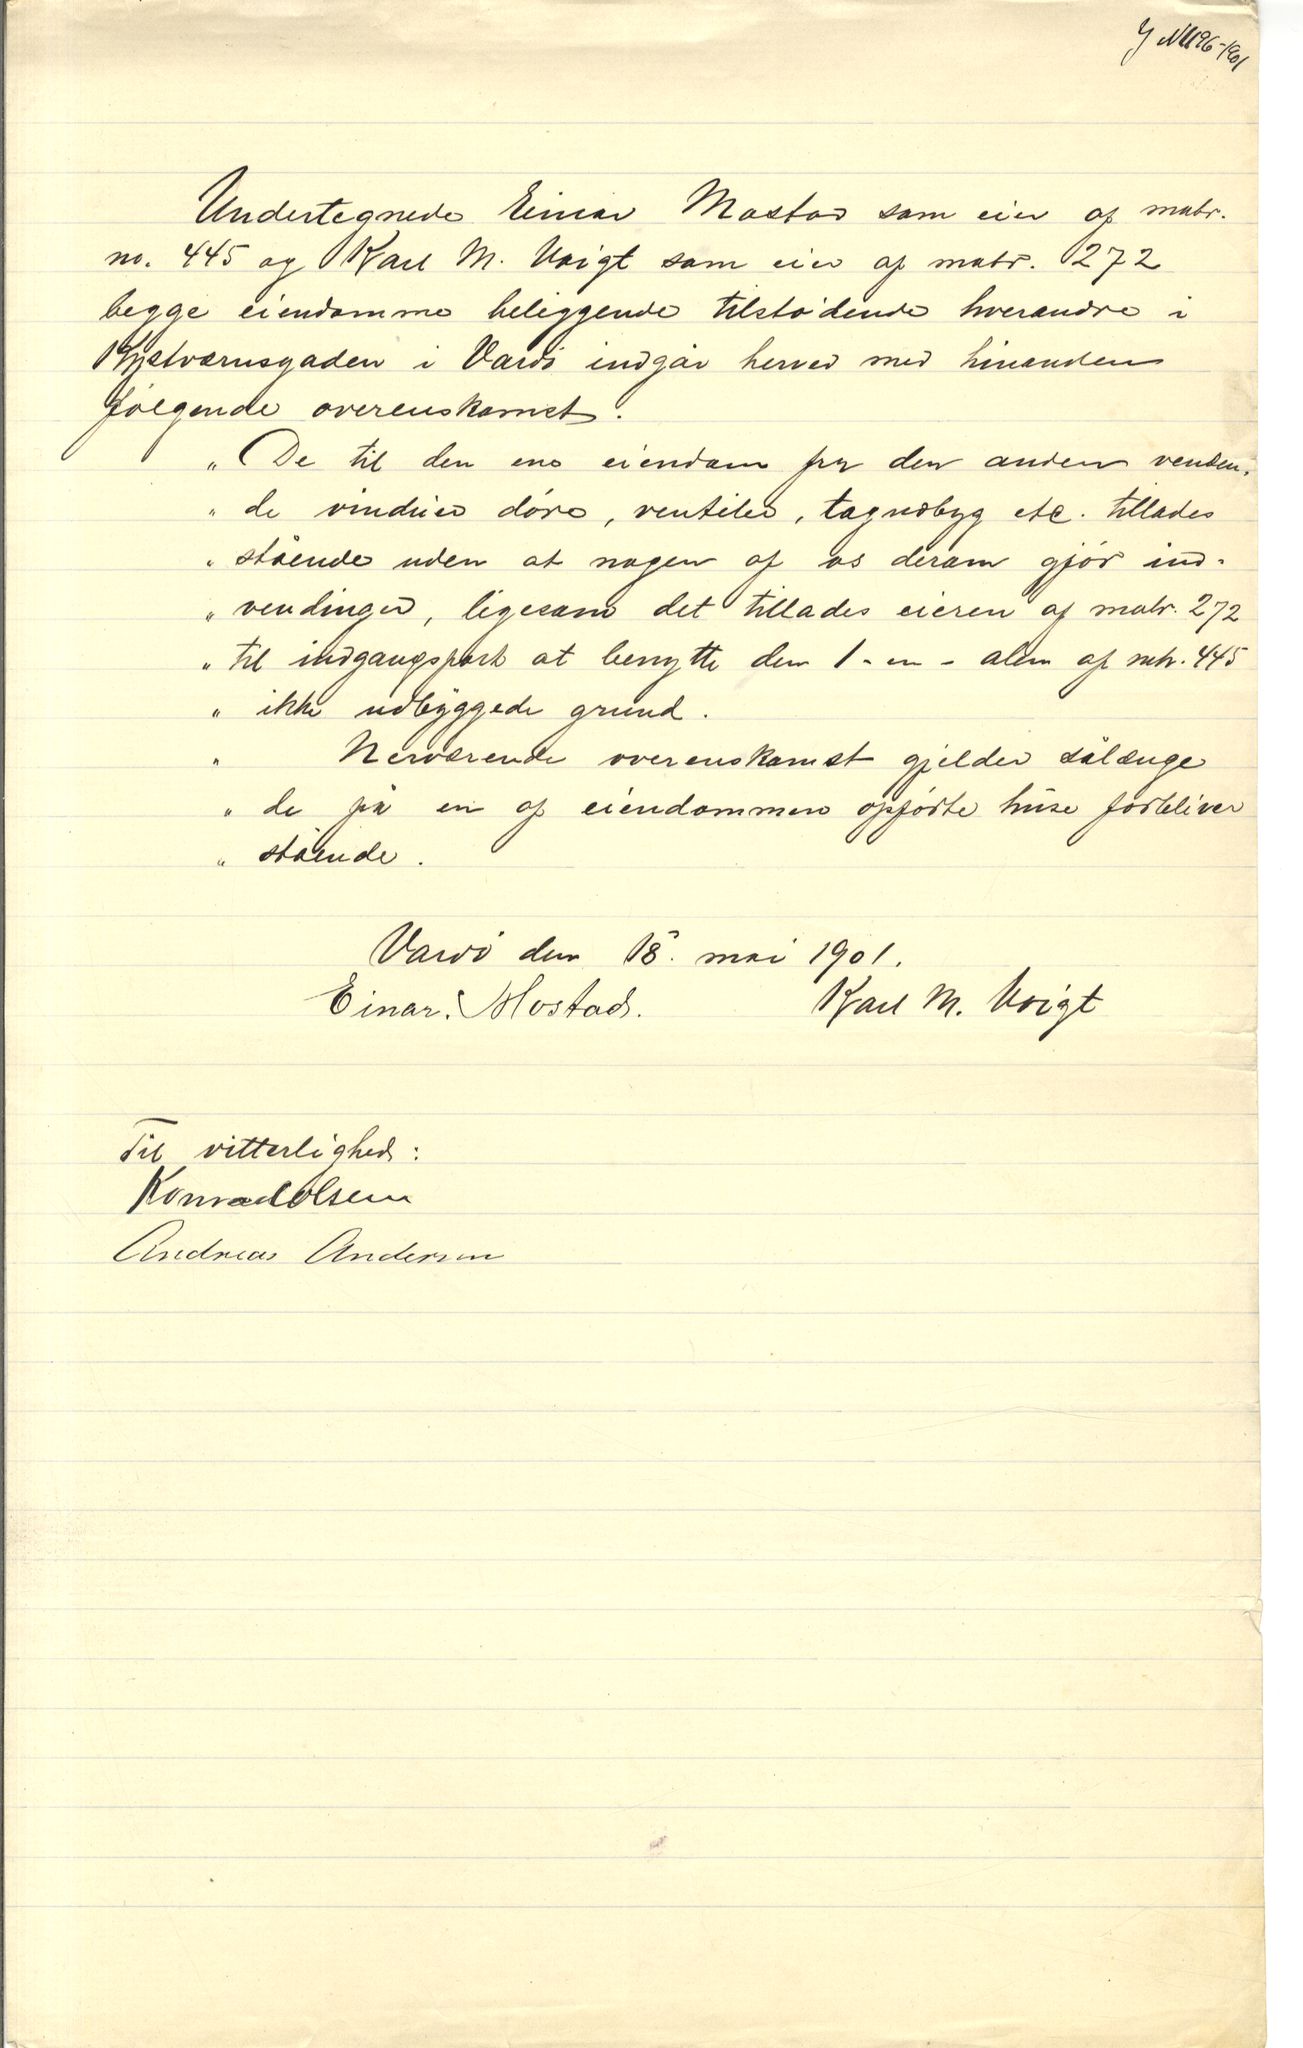 J No 1196-1901
Undertegnede Einar Mostad som eier af matr.
no. 445 og Karl M. Voigt som eier af matr. 272
begge eiendomme beliggende tilstødende hverandre i
Kystværnsgaden i Vardö indgår herved med hinanden
følgende overenskomst.
„ De til den ene eiendom fra den anden venden-
„ de vinduer döre, ventiler, tagudbyg etc. tillades
„ stående uden at nogen af os derom gjör ind-
„ vendinger, ligesom det tillades eieren af matr. 272
„ til indgangsport at benytte den 1 - en - alen af mtr. 445
„ ikke udbyggede grund.
„ Nerværende overenskomst gjelder sålænge
„ de på en af eiendommene opförte huse forbliver
„ stående.
Vardö den 18. mai 1901.
Einar Mostad. Karl M. Voigt
Til vitterlighed:
Konrad Olsen
Andreas Andersen